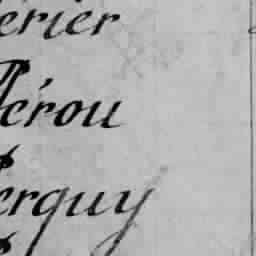 érier
Pérou
erguy